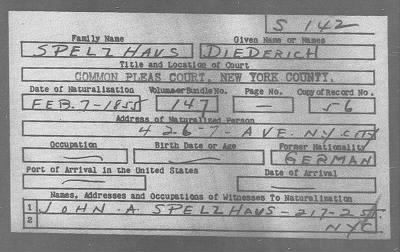 S 142
Family Name Given Name or Names
SPELZHAUS DIEDERICH
Title and Location of Court
COMMON PLEAS COURT, NEW YORK COUNTY.
Date of Naturalization Volume or Bundle No. Page No. Copy of Record No.
FEB. 7-1855 147 — 56
Address of Naturalized Person
426-7-AVE. N.Y. CITY
Occupation Birth Date or Age Former Nationality
— — GERMAN
Port of Arrival in the United States Date of Arrival
— —
Names, Addresses and Occupations of Witnesses To Naturalization
1 JOHN-A. SPELZHAUS-217-2
2 NYC